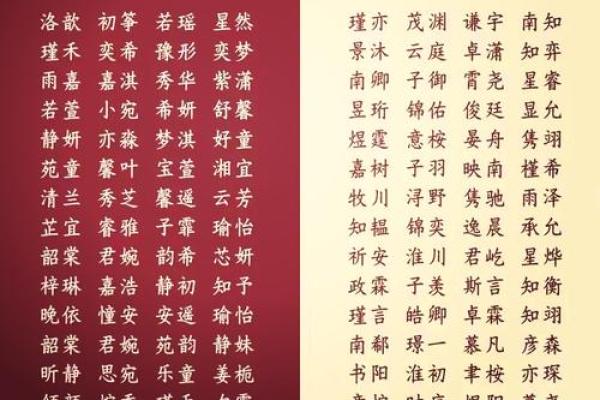 洛歆 初筝 若瑶 星然
瑾禾 奕希 豫彤 奕梦
雨嘉 嘉淇 秀华 紫潇
若萱 小宛 希妍 舒馨
静妍 亦淼 梦淇 好童
苑童 馨叶 宝萱 湘宜
清兰 秀芝 馨遥 云芳
芷宜 睿雅 子霏 瑜怡
韶棠 君婉 韵希 芯妍
梓琳 嘉浩 静初 知予
晚依 憧安 安遥 瑜怡
韶棠 君婉 苑韵 静妹
昕静 思宛 乐童 姜栀
瑾亦 茂渊 谦宇 南知
景沐 云庭 卓潇 知弈
南卿 子御 霄尧 星睿
昱珩 锦佑 俊廷 显允
煜霆 意桉 晏舟 隽翊
嘉树 子羽 映南 槿希
牧川 浔野 隽驰 雨泽
知韫 锦奕 逸晨 承允
祈安 淮川 君屹 星烨
政霖 子羡 斯言 知衡
瑾言 皓卿 卓霖 知翊
南郗 璟一 慕凡 彦森
书阳 淮初 聿桉 亦琛